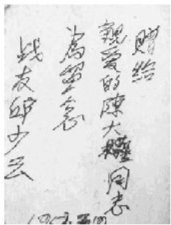 赠给
親爱的陳大同志
為留念
战友邱少云